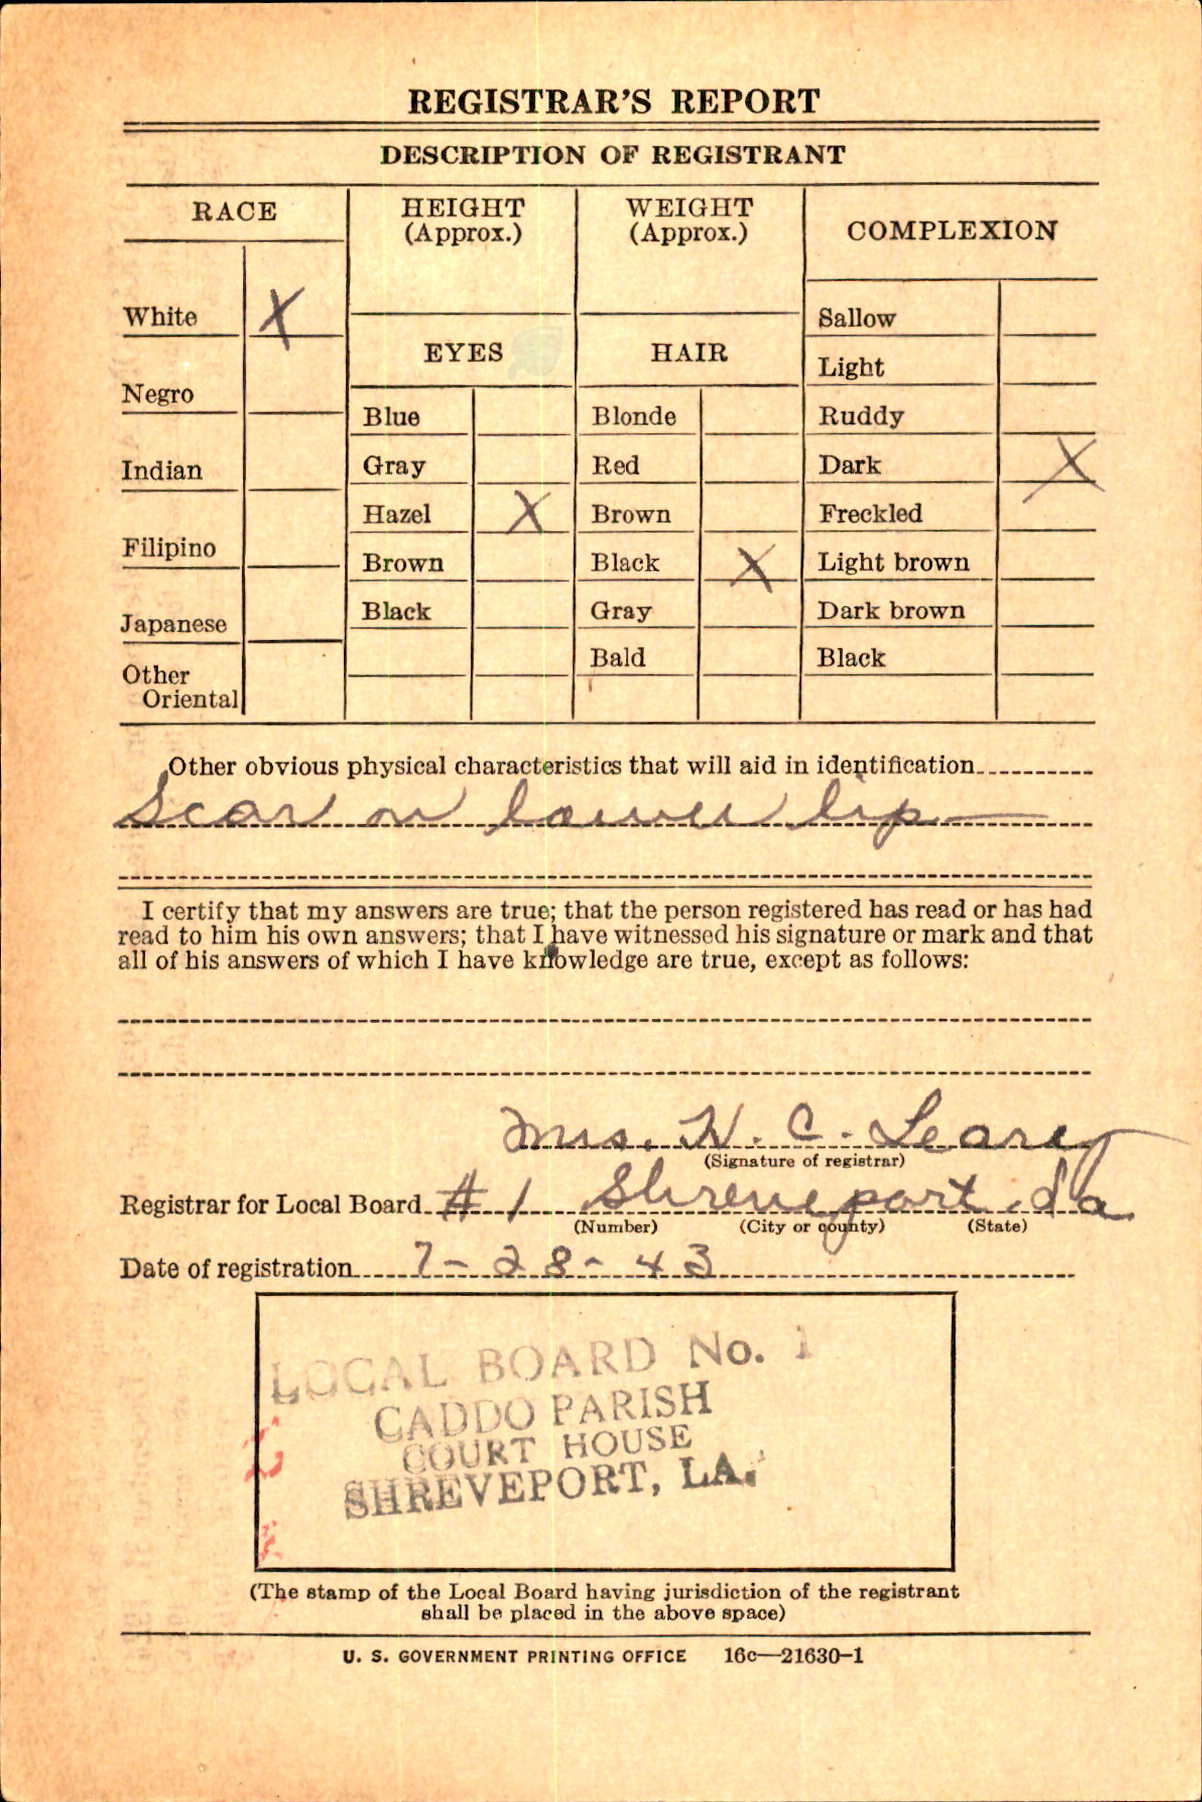 REGISTRAR'S REPORT
DESCRIPTION OF REGISTRANT
RACE
HEIGHT
(Approx.)
WEIGHT
(Approx.)
COMPLEXION
White X
Negro
Indian
Filipino
Japanese
Other
Oriental
EYES
Blue
Gray
Hazel X
Brown
Black
HAIR
Blonde
Red
Brown
Black X
Gray
Bald
Sallow
Light
Ruddy
Dark X
Freckled
Light brown
Dark brown
Black
Other obvious physical characteristics that will aid in identification
Scar on lower lip
I certify that my answers are true; that the person registered has read or has had
read to him his own answers; that I have witnessed his signature or mark and that
all of his answers of which I have knowledge are true, except as follows:
Mrs. H. C. Leary
(Signature of registrar)
Registrar for Local Board #1 Shreveport La
(Number) (City or county) (State)
Date of registration 7-28-43
LOCAL BOARD No. 1
CADDO PARISH
COURT HOUSE
SHREVEPORT, LA.
(The stamp of the Local Board having jurisdiction of the registrant
shall be placed in the above space)
U. S. GOVERNMENT PRINTING OFFICE 16c—21630-1